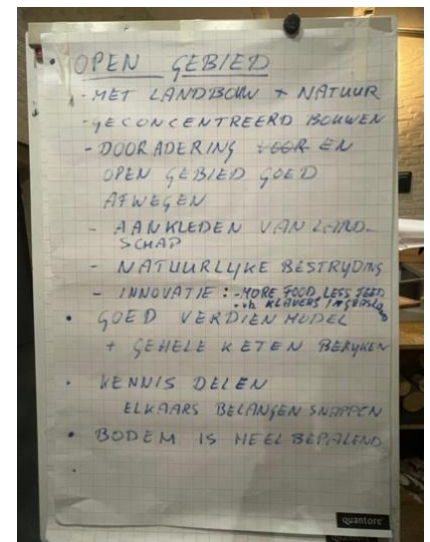 • OPEN GEBIED
- MET LANDBOUW + NATUUR
- GECONCENTREERD BOUWEN
- DOORADERING VOOR EN
OPEN GEBIED GOED
AFWEGEN
- AANKLEDEN VAN LAND-
SCHAP
- NATUURLYKE BESTRYDING
- INNOVATIE : - MORE FOOD LESS FEED
KLAVERS IN GRASLAND
• GOED VERDIENMODEL
+ GEHELE KETEN BEKYKEN
• KENNIS DELEN
ELKAARS BELANGEN SNAPPEN
• BODEM IS HEEL BEPALEND
•
quantore